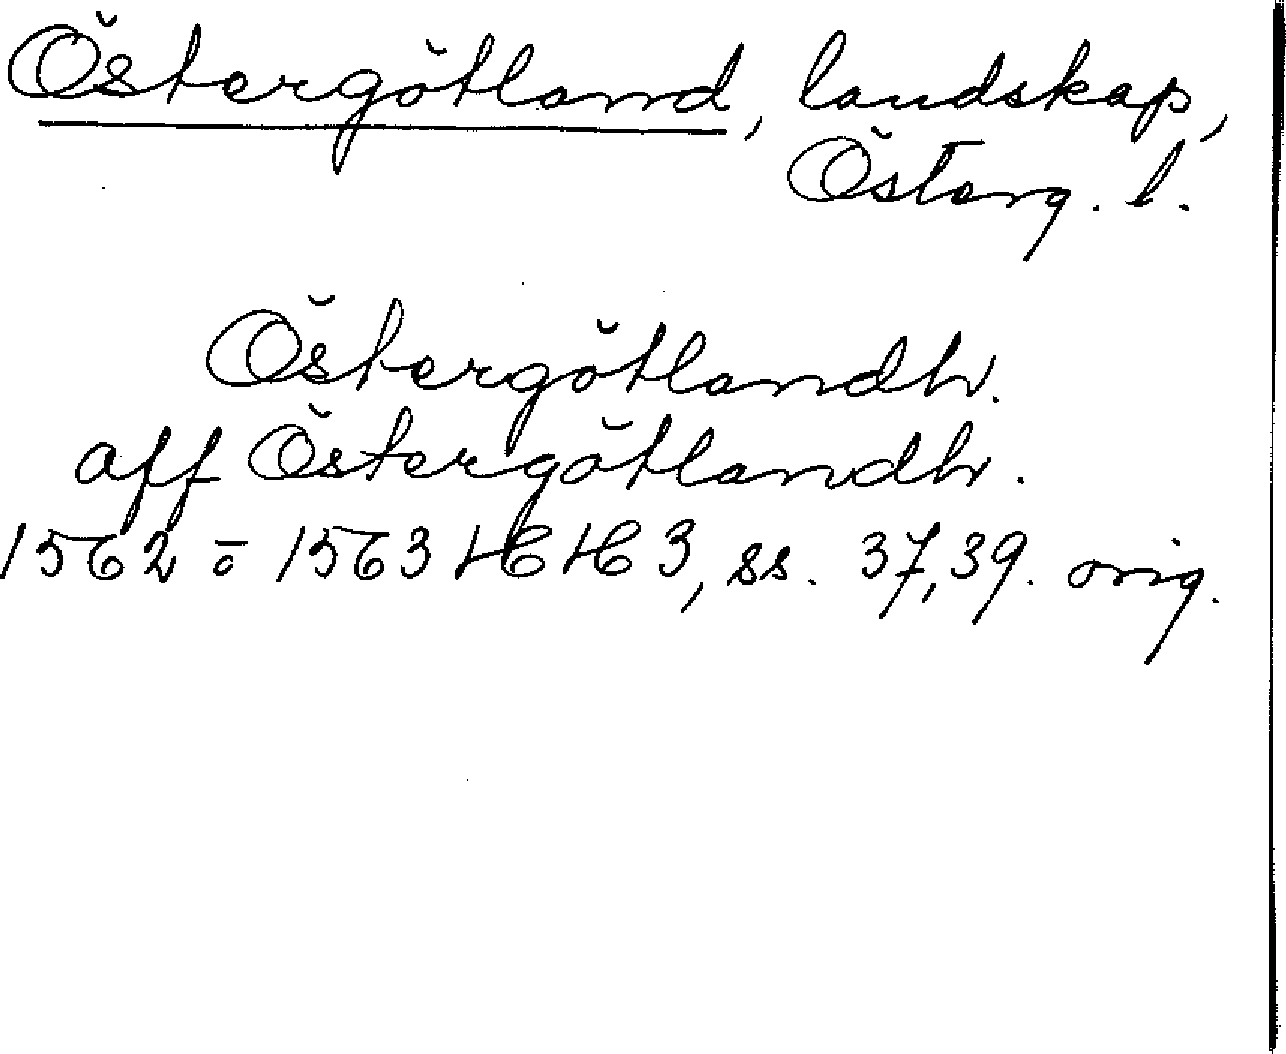 Östergötland, landskap,
Österg. l.
Östergötlandh.
aff Östergötlandh.
1562 o 1563 HH 3, ss. 37, 39. orig.